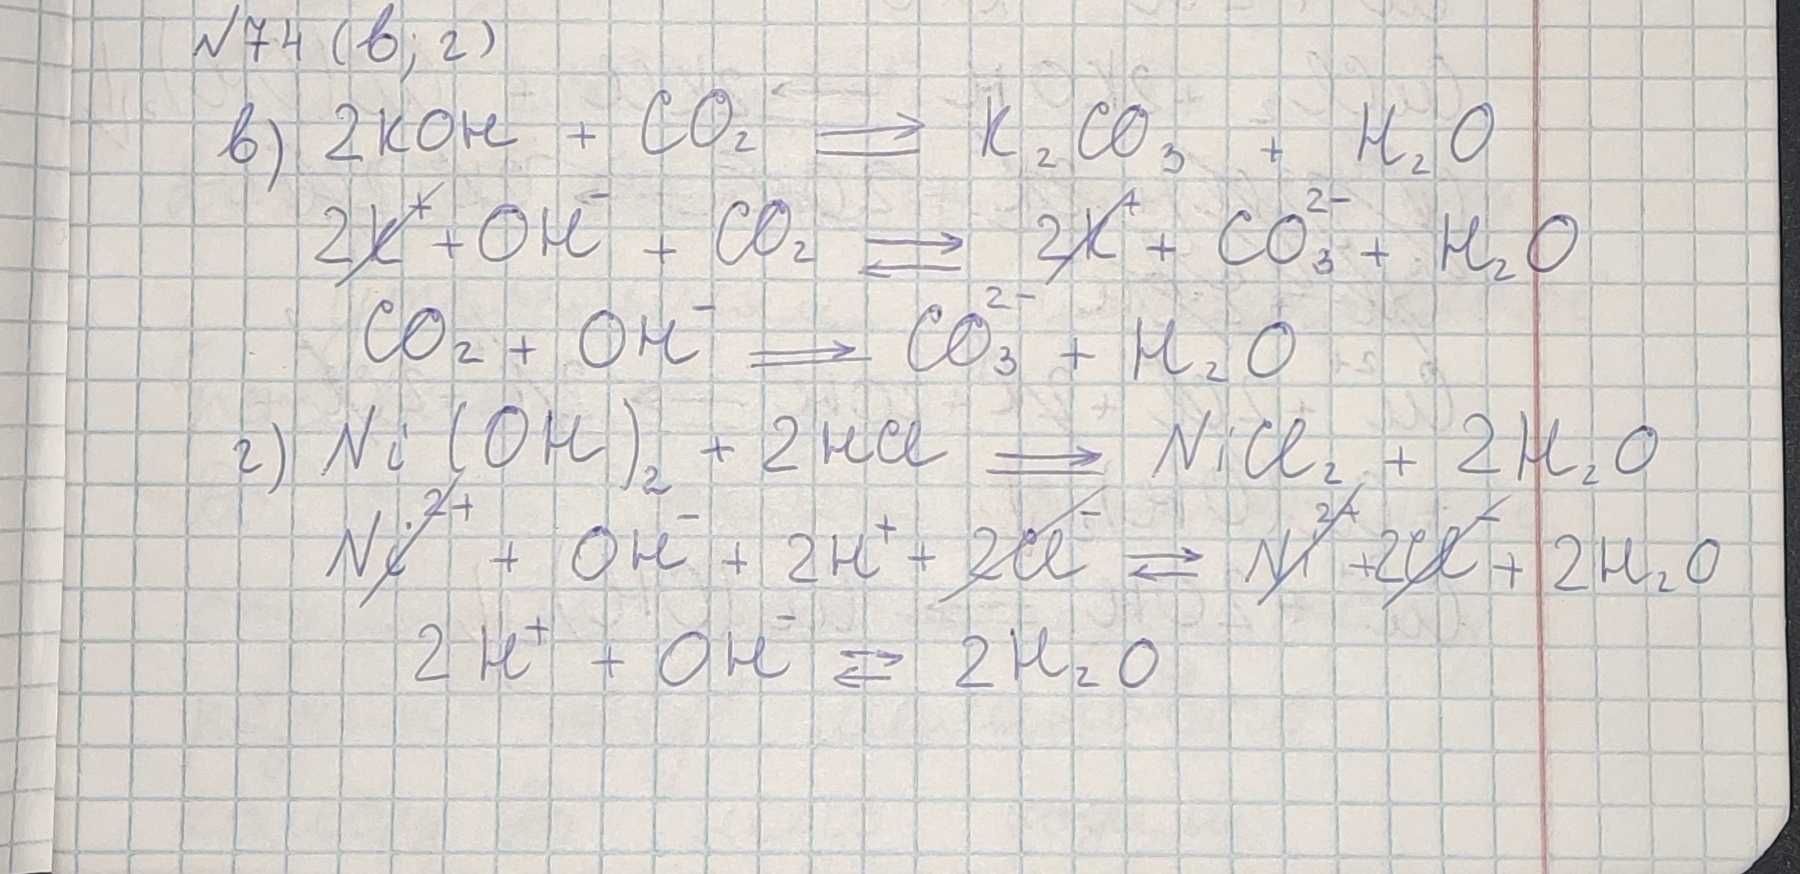 №74 (в; г)
в) 2KOH + CO₂ ⇒ K₂CO₃ + H₂O
2K⁺ + OH⁻ + CO₂ ⇄ 2K⁺ + CO₃²⁻ + H₂O
CO₂ + OH⁻ ⇒ CO₃²⁻ + H₂O
г) Ni(OH)₂ + 2HCl ⇒ NiCl₂ + 2H₂O
Ni²⁺ + OH⁻ + 2H⁺ + 2Cl⁻ ⇄ Ni²⁺ + 2Cl⁻ + 2H₂O
2H⁺ + OH⁻ ⇄ 2H₂O